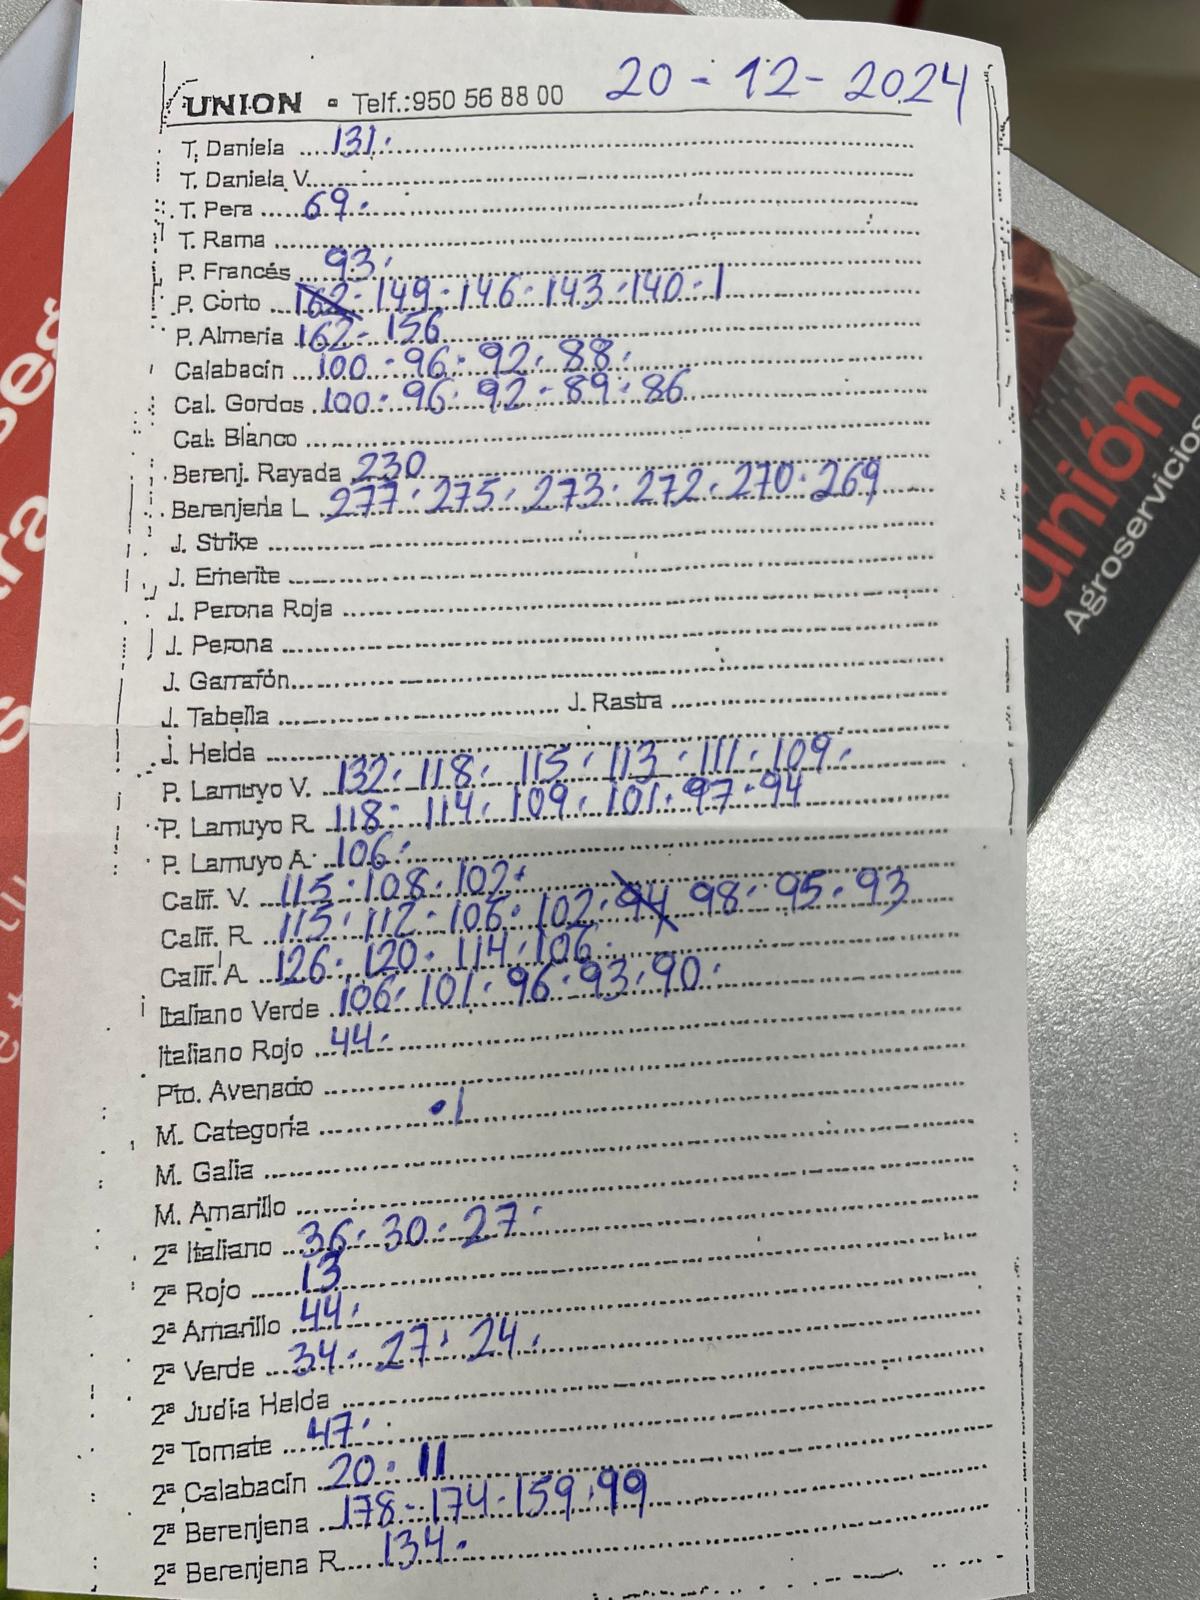 UNION - Telf.:950 56 88 00 20-12-2024
T. Daniela 131.
T. Daniela V.
T. Pera 69.
T. Rama
P. Francés 93.
P. Corto 162. 149. 146. 143. 140. 1
P. Almeria 162- 156
Calabacín 100 - 96. 92. 88.
Cal. Gordos 100. 96. 92. 89. 86
Cal. Blanco
Berenj. Rayada 230
Berenjena L 277. 275. 273. 272. 270. 269
J. Strike
J. Emerite
J. Perona Roja
J. Perona
J. Garrafón
J. Tabella J. Rastra
J. Helda
P. Lamuyo V. 132. 118. 115. 113. 111. 109.
P. Lamuyo R. 118- 114. 109. 101. 97. 94
P. Lamuyo A. 106.
Calif. V. 115. 108. 102.
Calif. R. 115. 112- 106. 102. 94 98. 95. 93
Calif. A. 126. 120. 114. 106.
Italiano Verde 106. 101. 96. 93. 90.
Italiano Rojo 44.
Pto. Avenado
M. Categoría
M. Galia
M. Amarillo
2ª Italiano 36. 30. 27.
2ª Rojo 13
2ª Amarillo 44.
2ª Verde 34. 27. 24.
2ª Judía Helda
2ª Tomate 47.
2ª Calabacín 20. 11
2ª Berenjena 178- 174. 159. 99
2ª Berenjena R. 134.
unión
Agroservicios